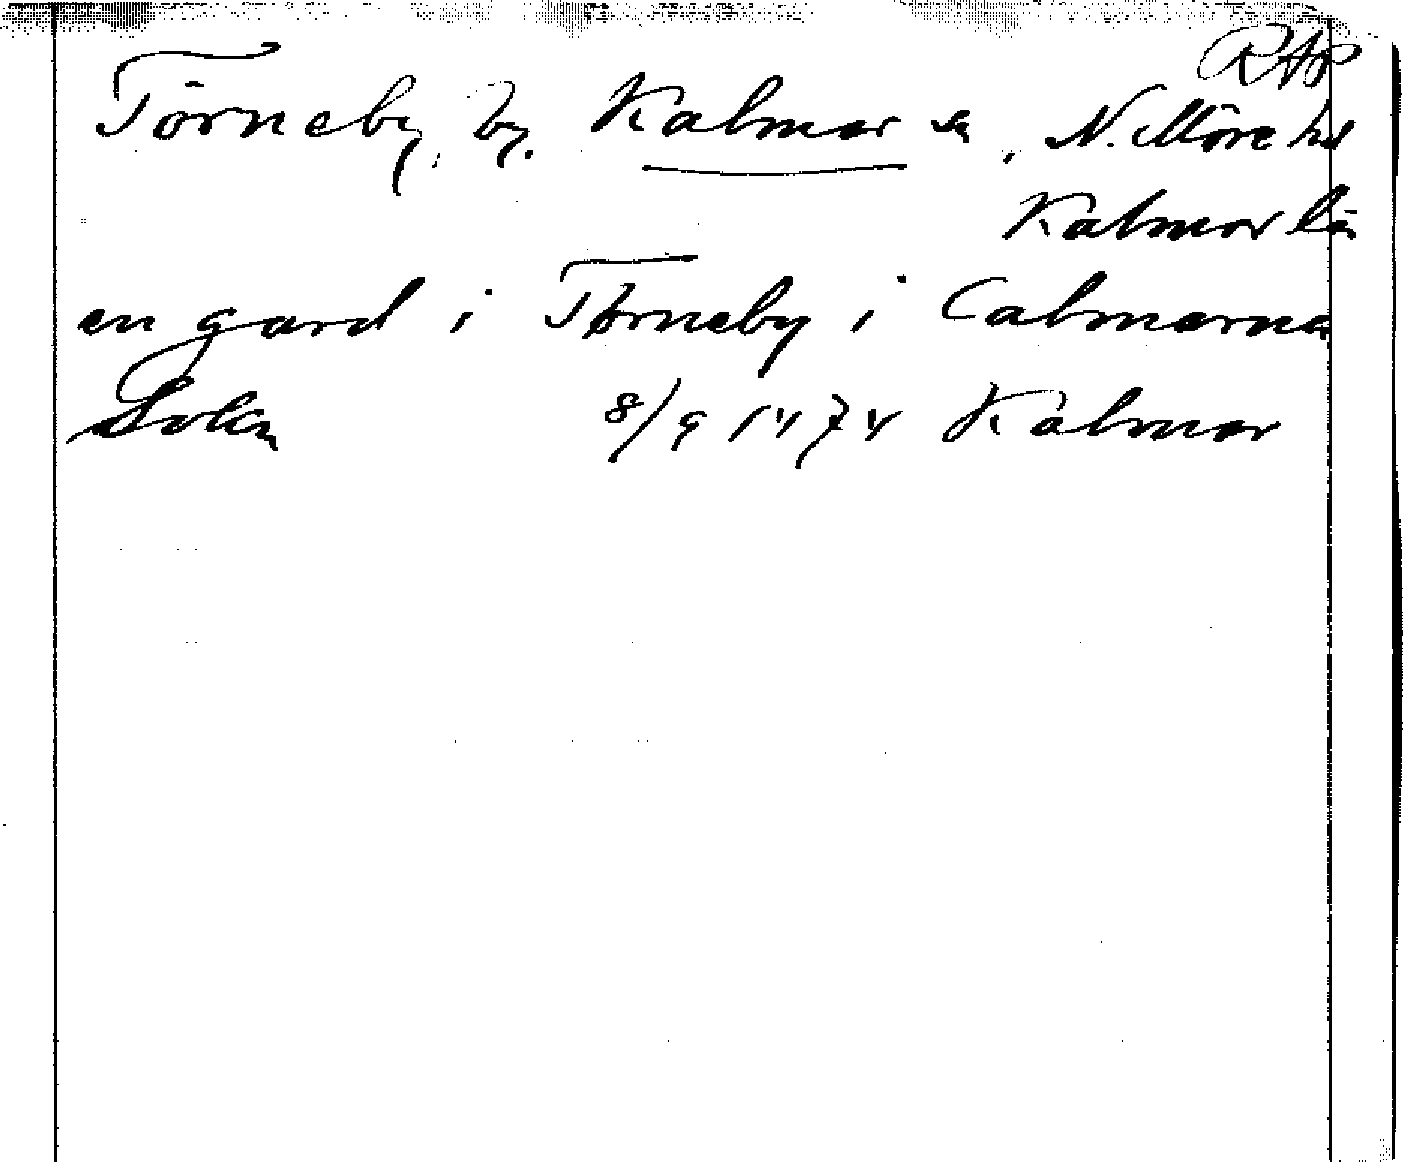 RAP
Törneby, by. Kalmar sn, N. Möre hd
Kalmar län
en gard i Tørneby i Calmarna
Sokn 8/9 1474 Kalmar